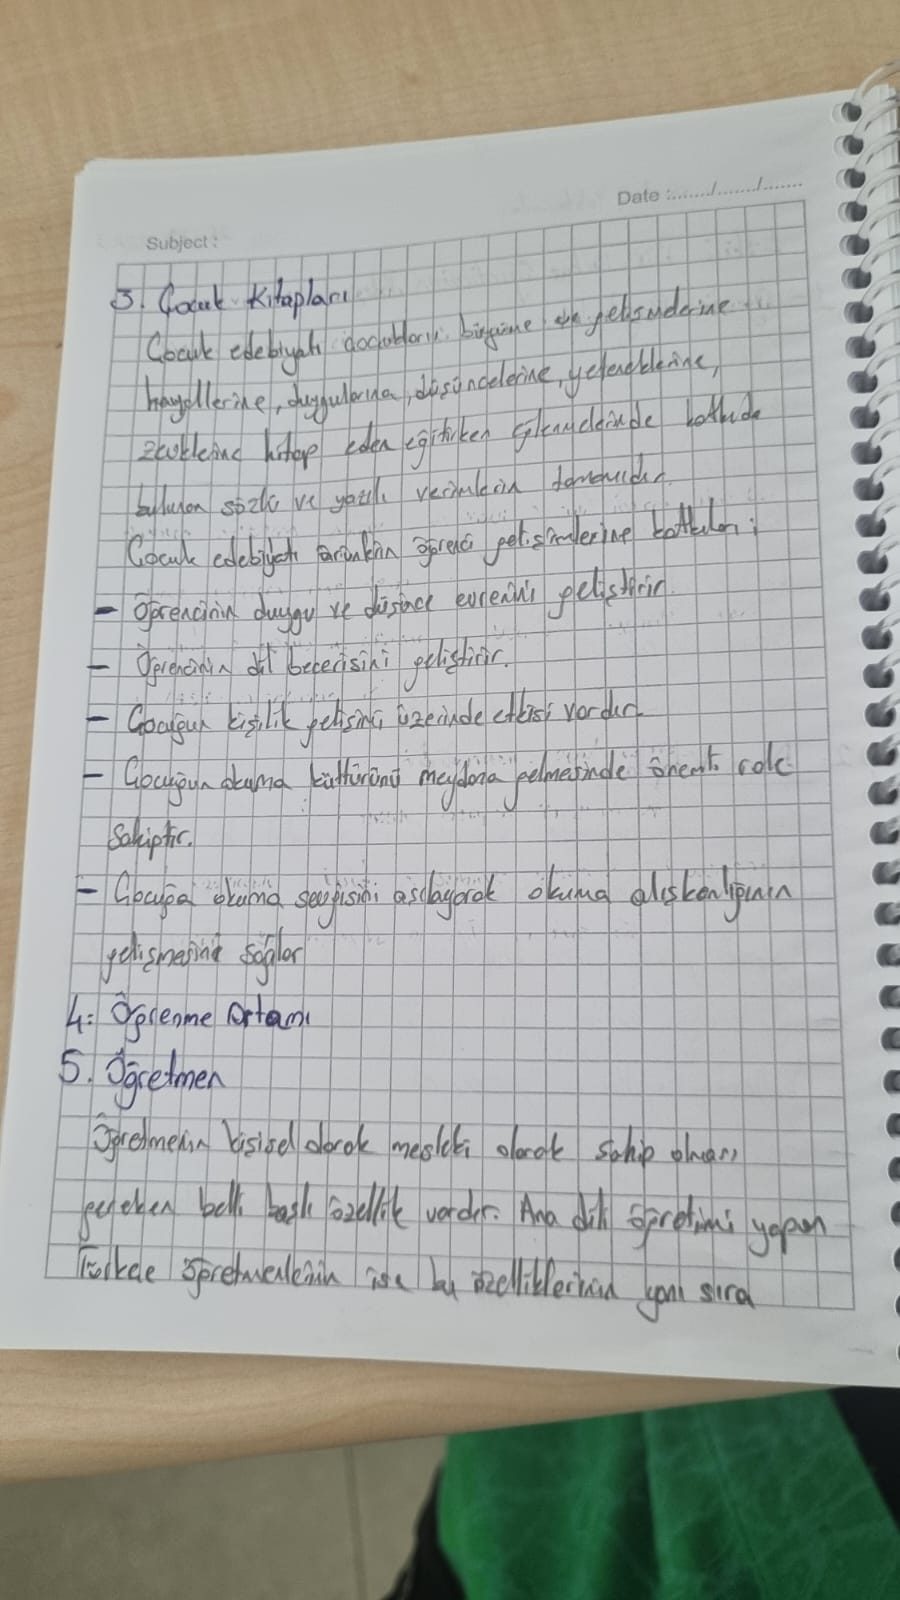 Date :......./......./.......
Subject :
3. Çocuk Kitapları
Çocuk edebiyatı çocukların büyüme ve gelişmelerine
hayallerine, duygularına, düşüncelerine, yeteneklerine,
zevklerine hitap eden eğitirken eğlenmelerinde katkıda
bulunan sözlü ve yazılı verimlerin tamamıdır.
Çocuk edebiyatı ürünlerin öğrenci gelişimlerine katkıları;
- Öğrencinin duygu ve düşünce evrenini geliştirir.
- Öğrencinin dil becerisini geliştirir.
- Çocuğun kişilik gelişimi üzerinde etkisi vardır.
- Çocuğun okuma kültürünü meydana gelmesinde önemli role
sahiptir.
- Çocuğa okuma sevgisini aşılayarak okuma alışkanlığının
gelişmesini sağlar
4. Öğrenme Ortamı
5. Öğretmen
Öğretmenin kişisel olarak mesleki olarak sahip olması
gereken belli başlı özellik vardır. Ana dili öğretimi yapan
Türkçe öğretmenlerinin ise bu özelliklerinin yanı sıra